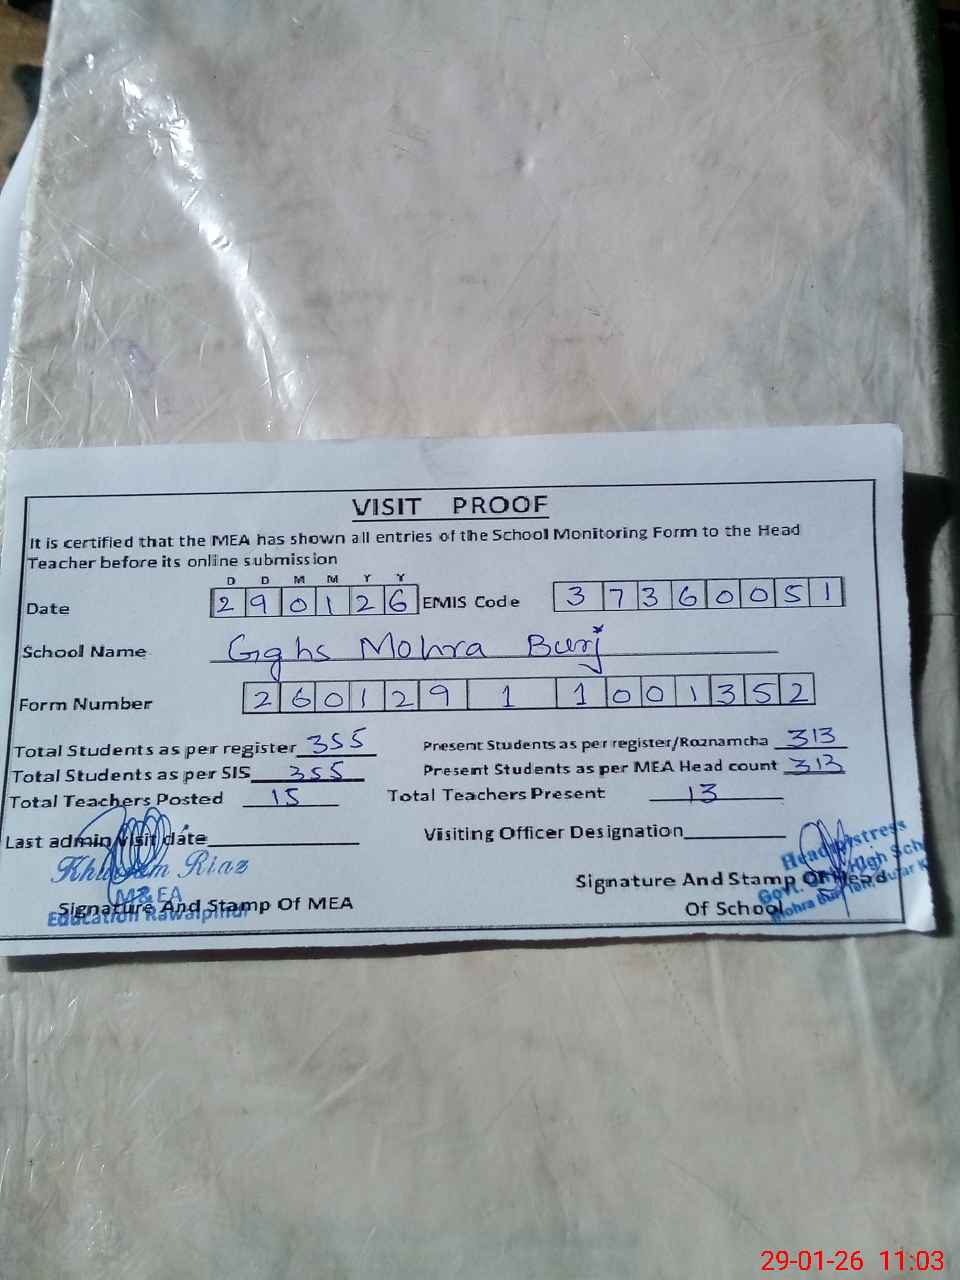 VISIT PROOF
It is certified that the MEA has shown all entries of the School Monitoring Form to the Head
Teacher before its online submission
D D M M Y Y
Date 2 9 0 1 2 6 EMIS Code 3 7 3 6 0 0 5 1
School Name Gghs Mohra Burj
Form Number 2 6 0 1 2 9 1 1 0 0 1 3 5 2
Total Students as per register 355 Present Students as per register/Roznamcha 313
Total Students as per SIS 355 Present Students as per MEA Head count 313
Total Teachers Posted 15 Total Teachers Present 13
Last admin visit date Visiting Officer Designation
Khurram Riaz
M&EA
Education Rawalpindi
Signature And Stamp Of MEA
Headmistress
Govt. High
Mohra
Signature And Stamp Of Head
Of School
29-01-26 11:03